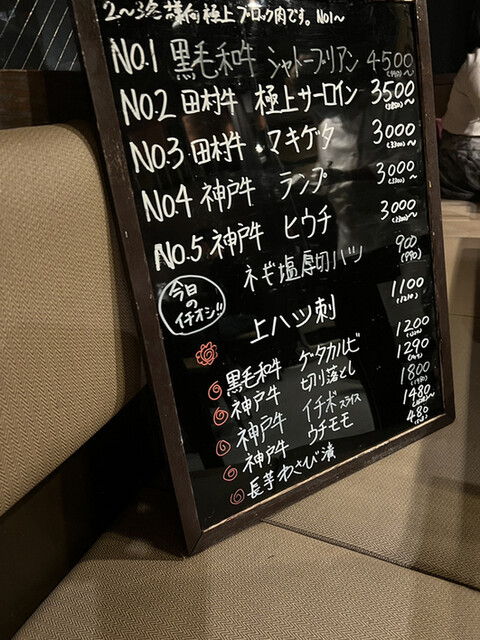 2~3名様向極上ブロック肉です。NO1~
NO.1 黒毛和牛 シャトーブリアン 4500~
NO.2 田村牛 極上サーロイン 3500~
NO.3 田村牛・マキゲタ 3000~
(3300)
NO.4 神戸牛 ランプ 3000~
(3300)
NO.5 神戸牛 ヒウチ 3000~
(3300)
今日のイチオシ!!
ネギ塩厚切ハツ 900
(990)
上ハツ刺 1100
(1210)
黒毛和牛 ゲタカルビ 1200
神戸牛 切り落とし 1290
神戸牛 イチボスライス 1800
神戸牛 ウチモモ 1480~
長芋わさび漬 480